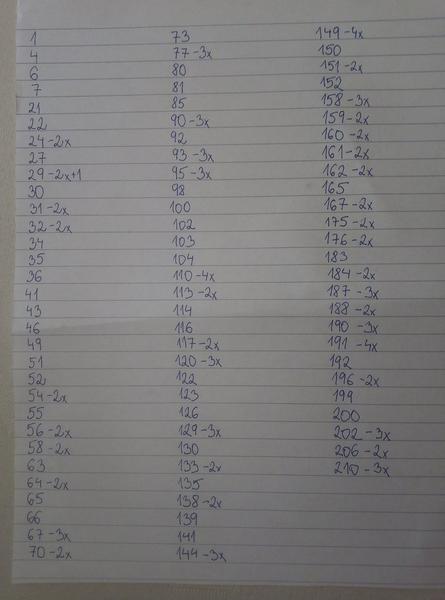 1
4
6
7
21
22
24-2x
27
29-2x+1
30
31-2x
32-2x
34
35
36
41
43
46
49
51
52
54-2x
55
56-2x
58-2x
63
64-2x
65
66
67-3x
70-2x
73
77-3x
80
81
85
90-3x
92
93-3x
95-3x
98
100
102
103
104
110-4x
113-2x
114
116
117-2x
120-3x
122
123
126
129-3x
130
133-2x
135
138-2x
139
141
144-3x
149-4x
150
151-2x
152
158-3x
159-2x
160-2x
161-2x
162-2x
165
167-2x
175-2x
176-2x
183
184-2x
187-3x
188-2x
190-3x
191-4x
192
196-2x
199
200
202-3x
206-2x
210-3x